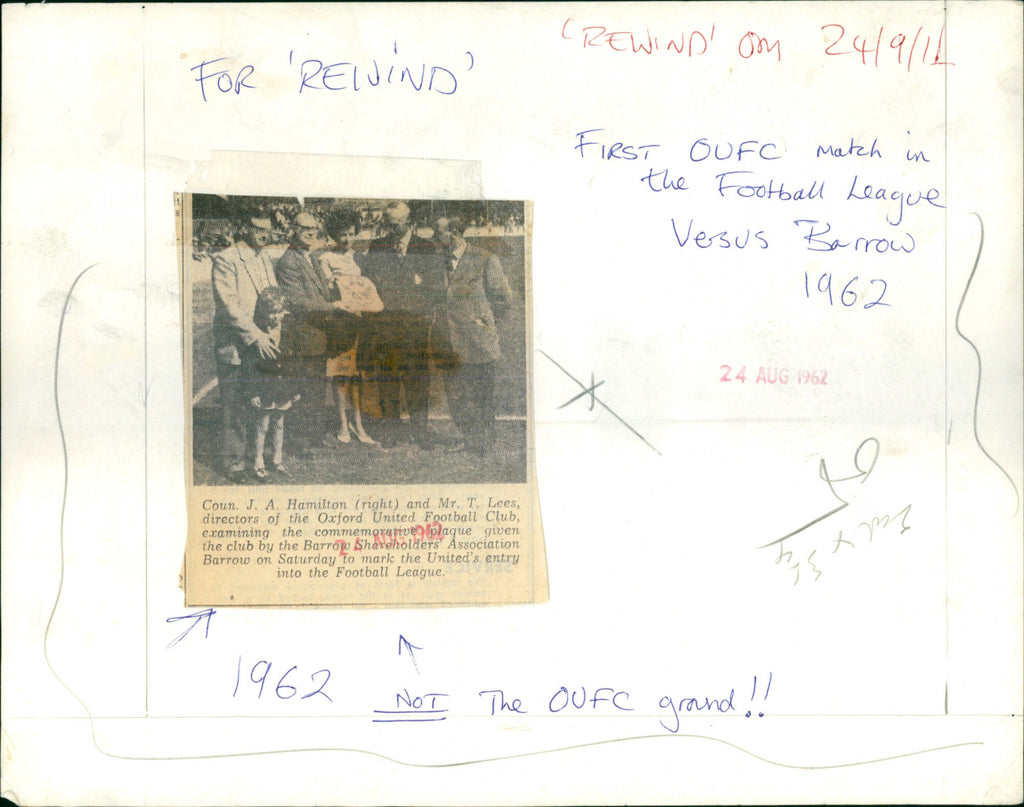 'REWIND' on 24/9/11
FOR 'REWIND'
FIRST OUFC match in
the Football League
Versus Barrow
1962
24 AUG 1962
Coun. J. A. Hamilton (right) and Mr. T. Lees,
directors of the Oxford United Football Club,
examining the commemorative plaque given
the club by the Barrow Shareholders' Association
Barrow on Saturday to mark the United's entry
into the Football League.
24 AUG 1962
1962
NOT The OUFC ground!!